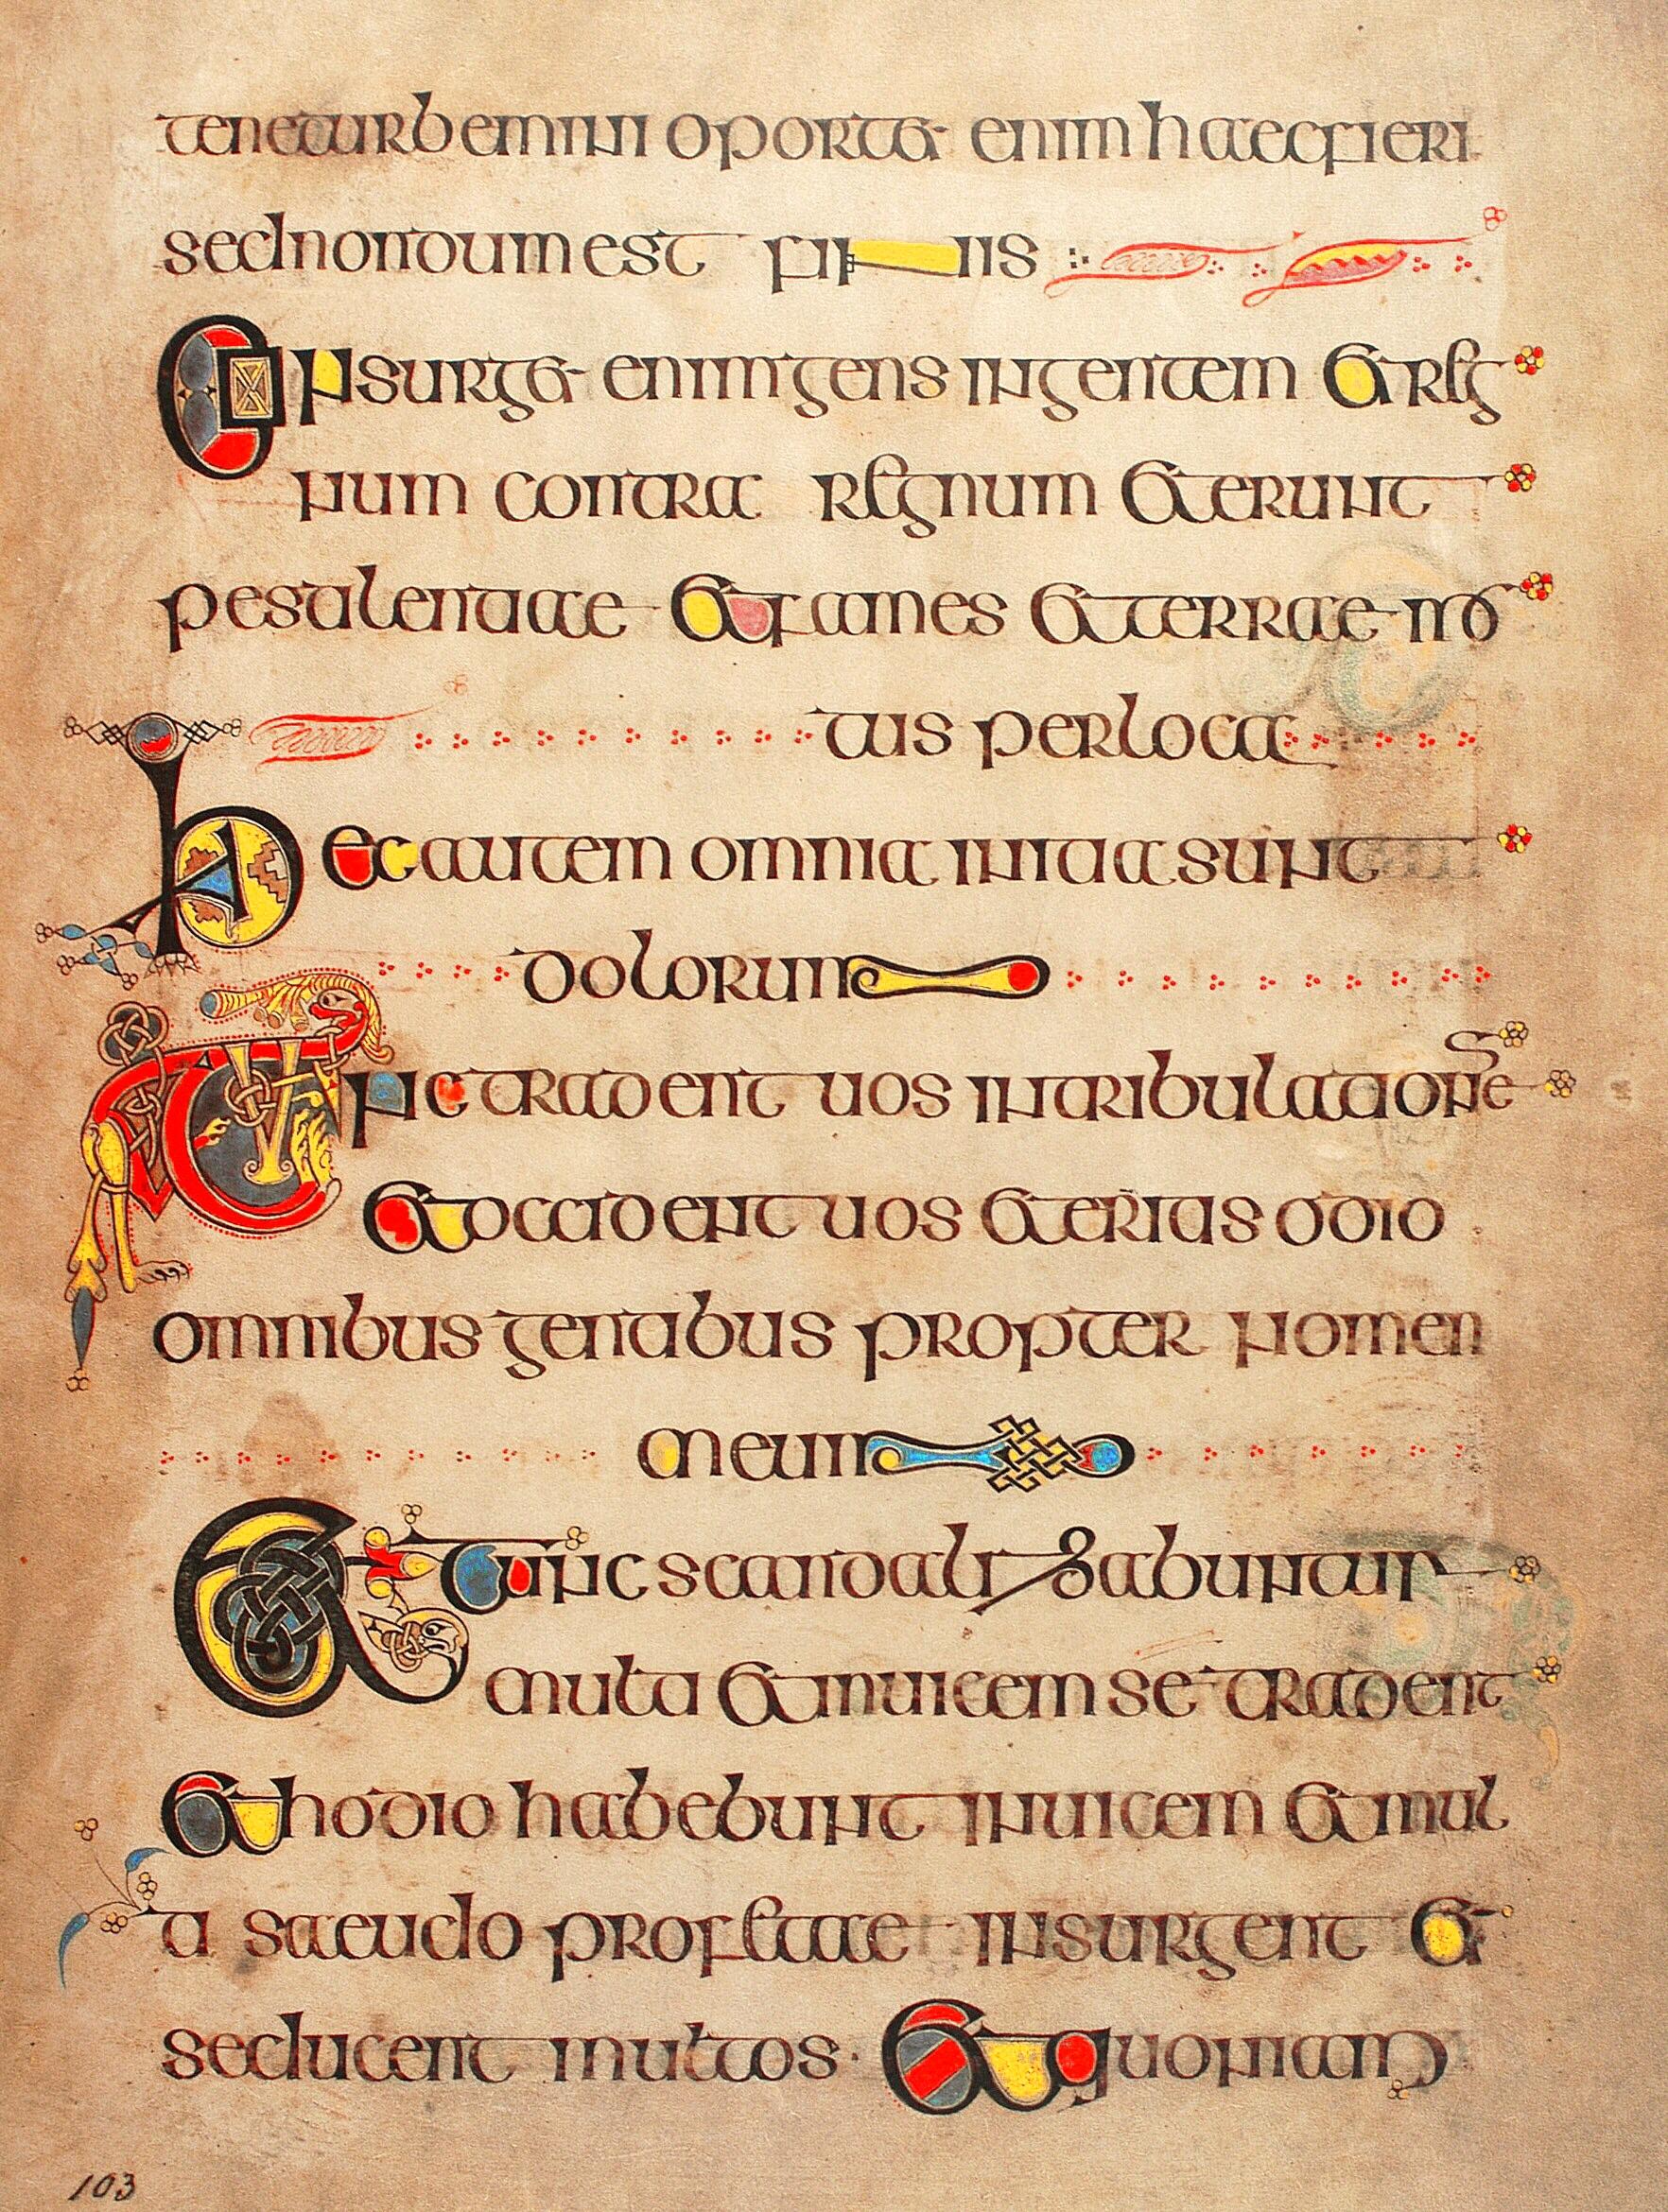 teneturbemini oportet enim haecfieri
sednondum est finis
Consurget enim gens ingentem et reg
num contra regnum eterunt
pestilentiae et fames et terrae mo
tus per loca
Hec autem omnia initia sunt
dolorum
Tunc tradent uos intribulationes
et occident uos eteritis odio
omnibus gentibus propter nomen
meum
Et tunc scandalizabuntur
multi et inuicem se tradent
et hodio habebunt inuicem et mul
ti saeudo profetae insurgent et
seducent multos · et quoniam
103